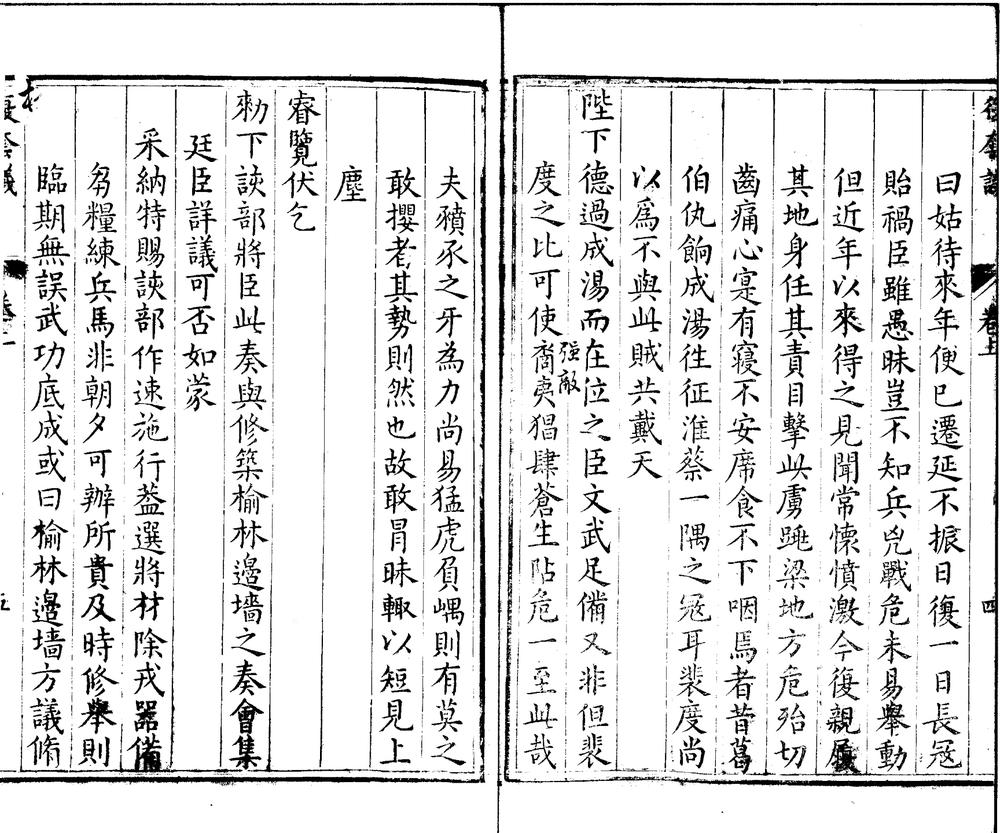 復套議
卷上
四
曰姑待來年便已遷延不振日復一日長寇
貽禍臣雖愚昧豈不知兵兇戰危未易舉動
但近年以來得之見聞常懷憤激今復親履
其地身任其責目擊此虜跳梁地方危殆切
齒痛心寔有寢不安席食不下咽焉者昔葛
伯仇餉成湯徃征淮蔡一隅之寇耳裴度尚
以爲不與此賊共戴天
陛下德過成湯而在位之臣文武足備又非但裴
度之比可使裔夷猖肆蒼生阽危一至此哉
强敵
夫豶豕之牙為力尚易猛虎負嵎則有莫之
敢攖者其勢則然也故敢冐昧輙以短見上
塵
睿覽伏乞
勑下該部將臣此奏與修築榆林邉墻之奏會集
廷臣詳議可否如蒙
采納特賜該部作速施行葢選將材除戎器備
芻糧練兵馬非朝夕可辦所貴及時修舉則
臨期無誤武功底成或曰榆林邉墻方議脩
復套議
五